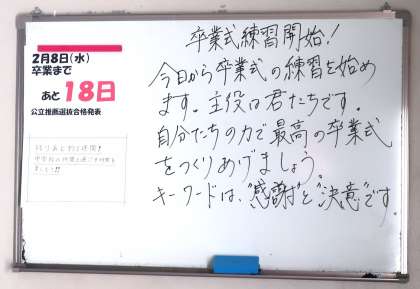 2月8日(水)
卒業まで
あと18日
公立推薦選抜合格発表
残りあと約3週間!
卒業式練習開始!
今日から卒業式の練習を始め
ます。主役は君たちです。
自分たちの力で最高の卒業式
をつくりあげましょう。
キーワードは、"感謝"と"決意"です。